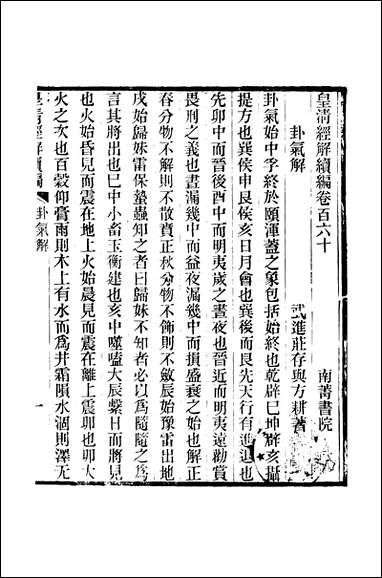 皇淸經解續編卷百六十
南菁書院
卦氣解
武進莊存與方耕著
卦氣始中孚終於頤渾蓋之象包括始終也乾辟巳坤辟亥攝
提方也巽侯申艮侯亥日月會也巽後而艮先天行有進退也
先卯中而晉後酉中而明夷歲之晝夜也晉近而明夷遠勸賞
畏刑之義也晝漏幾中而益夜漏幾中而損盛衰之始也解正
春分物不解則不散賁正秋分物不飾則不斂辰始豫雷出地
戌始歸妹雷保蟄蟲知之者曰歸妹不知者必以爲隨隨之爲
言其將出也巳中小畜玉衡建也亥中噬嗑大辰繫日而將見
也火始昏見而震在地上火始晨見而震在離上震卯也卯大
火之次也百穀仰膏雨則木上有水而爲井霜隕水涸則澤无
皇淸經解續編
卦氣解
一